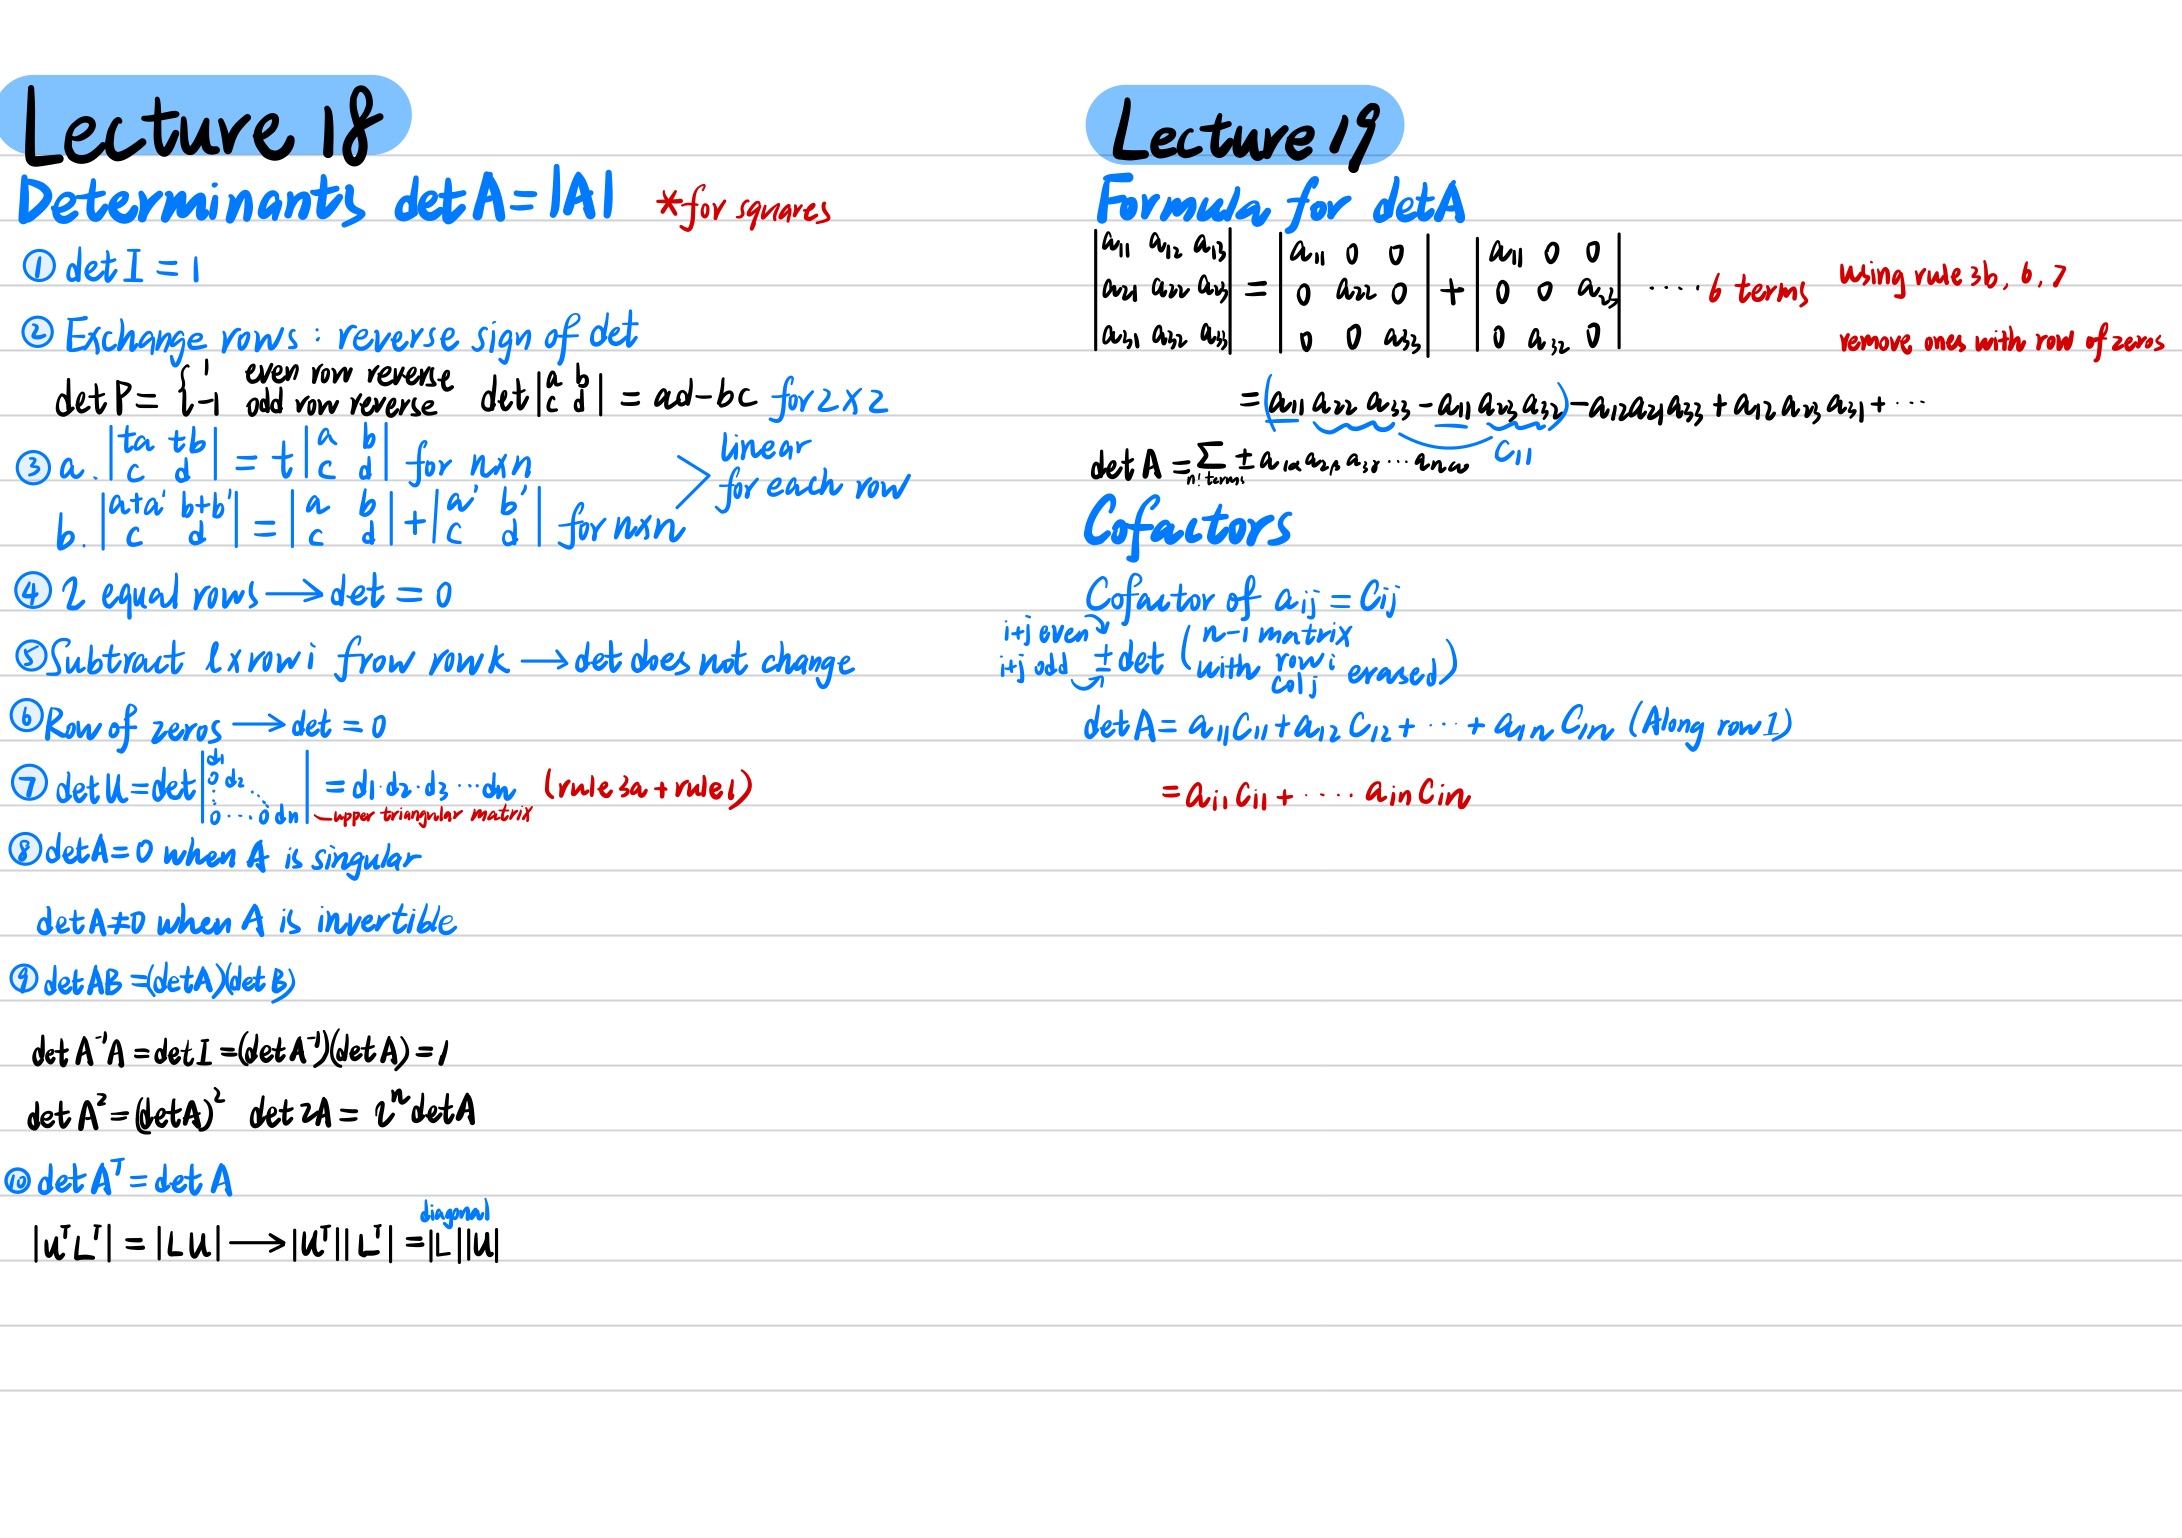 Lecture 18
Determinants det A = |A| *for squares
① det I = 1
② Exchange rows : reverse sign of det
det P = { 1 even row reverse
-1 odd row reverse
det |a b| = ad-bc for 2x2
|c d|
③ a. |ta tb| = t |a b| for nxn
|c d| |c d|
b. |a+a' b+b'| = |a b| + |a' b'| for nxn
|c d| |c d| |c d|
> linear
for each row
④ 2 equal rows → det = 0
⑤ Subtract l x row i from row k → det does not change
⑥ Row of zeros → det = 0
⑦ det U = det |d1
0 d2
⋮ ⋱
0 ⋯ 0 dn| = d1·d2·d3 ⋯dn (rule 3a + rule 1)
upper triangular matrix
⑧ det A = 0 when A is singular
det A ≠ 0 when A is invertible
⑨ det AB = (det A)(det B)
det A⁻¹A = det I = (det A⁻¹)(det A) = 1
det A² = (det A)² det 2A = 2ⁿ det A
⑩ det Aᵀ = det A
diagonal
|UᵀLᵀ| = |LU| → |Uᵀ||Lᵀ| = |L||U|
Lecture 19
Formula for det A
|a11 a12 a13| = |a11 0 0| + |a11 0 0| ····· 6 terms using rule 3b, 6, 7
|a21 a22 a23| |0 a22 0| |0 0 a23|
|a31 a32 a33| |0 0 a33| |0 a32 0| remove ones with row of zeros
= (a11 a22 a33 - a11 a23 a32) - a12 a21 a33 + a12 a23 a31 + ···
C11
det A = Σ ± a1α a2β a3γ ··· anω
n! terms
Cofactors
Cofactor of aij = Cij
i+j even
i+j odd ± det ( n-1 matrix
with row i
col j erased)
det A = a11 C11 + a12 C12 + ··· + a1n C1n (Along row 1)
= ai1 Ci1 + ····· ain Cin